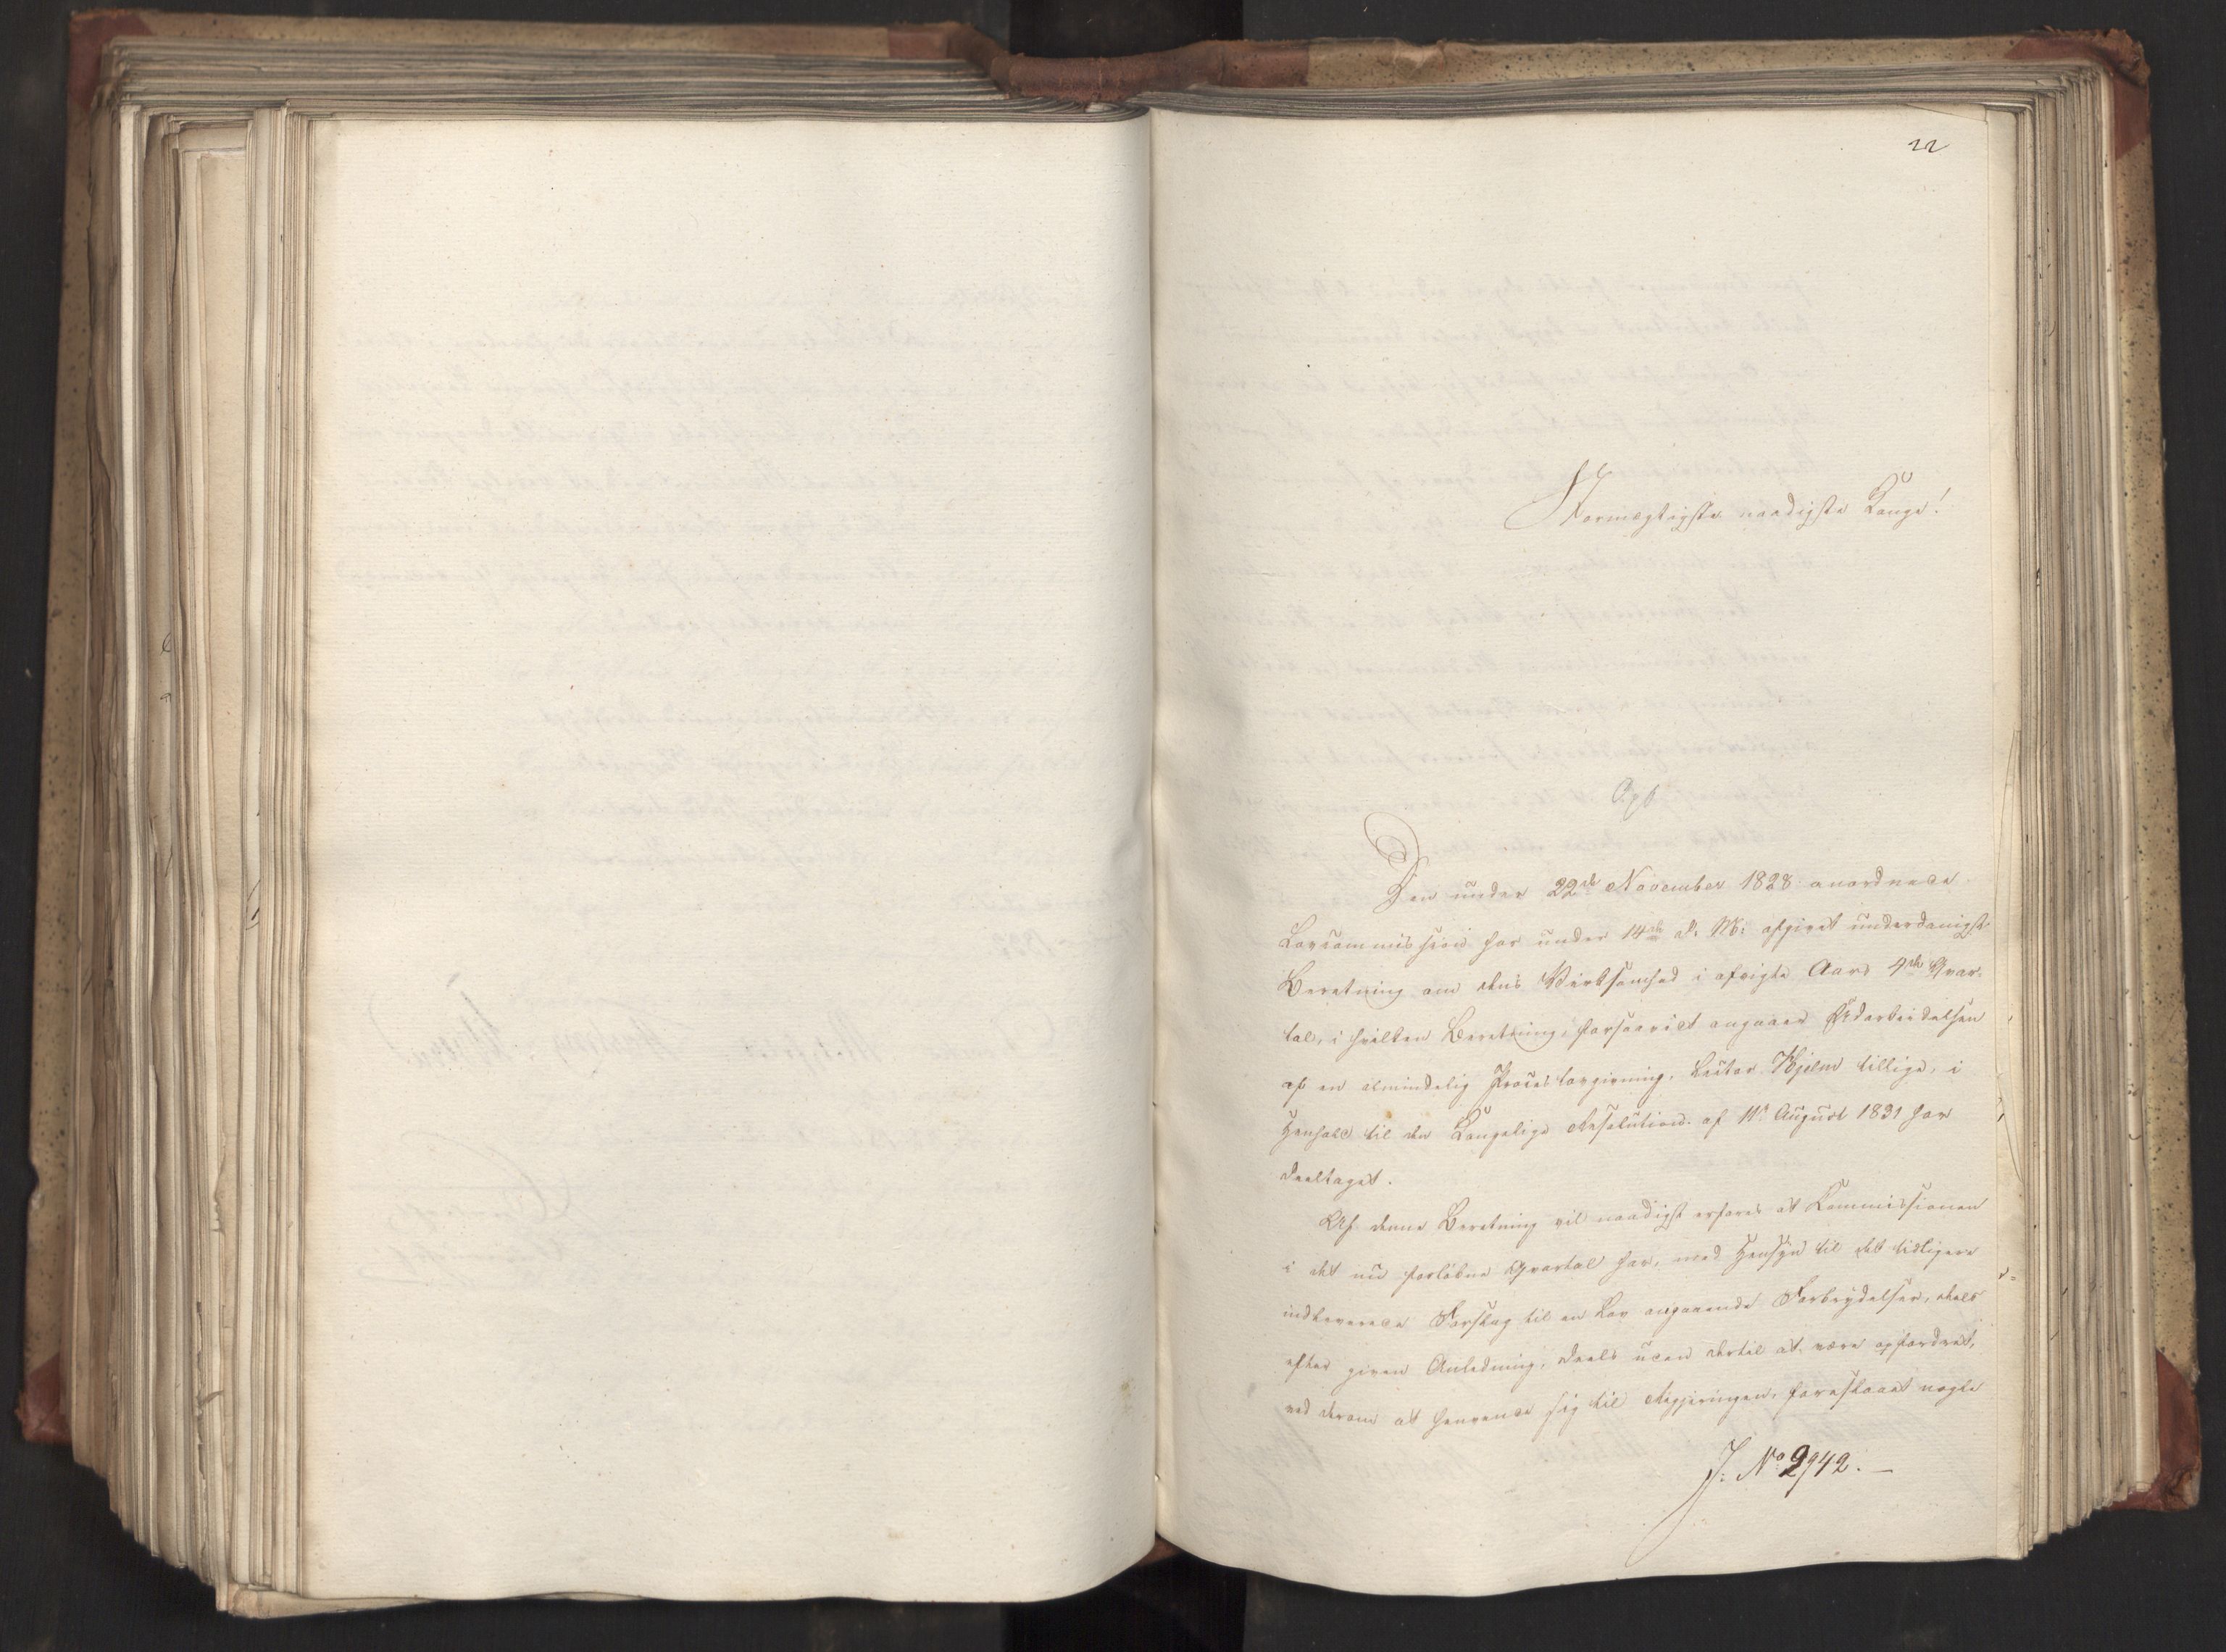 22
Stormægtigste naadigste Konge!
Den under 22de November 1828 anordnede
Lovcommission har under 14de d. M: afgivet underdanigst
Beretning om dens Virksomhed i afvigte Aars 4de Qvar-
tal, i hvilken Beretning, forsaavidt angaaer Udarbeidelsen
af en almindelig Proceslovgivning, Lector Hjelm tillige, i
Henhold til den Kongelige Resolution af 11te August 1831 har
deeltaget.
Af denne Beretning vil naadigst erfares at Commissionen
i det nu forløbne Qvartal har, med Hensyn til det tidligere
indleverede Forslag til en Lov angaaende Forbrydelser, deels
efter given Anledning, deels uden dertil at være opfordret,
ved derom at henvende sig til Regjeringen, foreslaaet nogle
J: No 2942.—